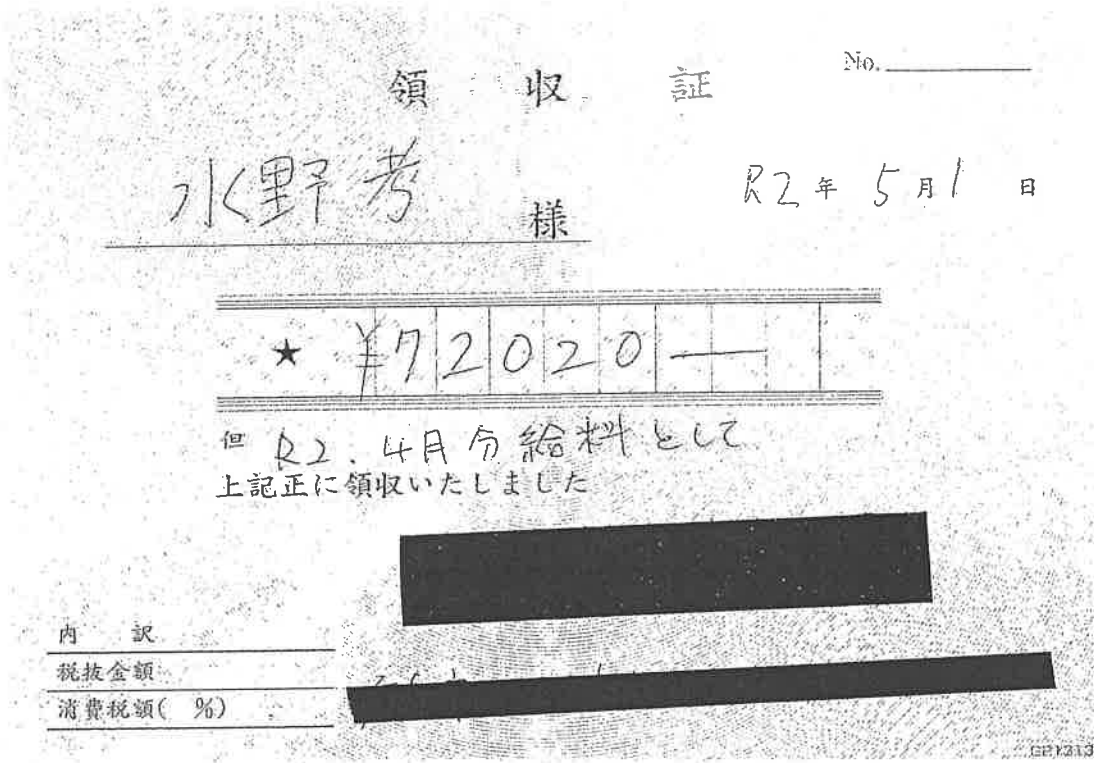 No.
領収証
水野考 様
R2年5月1日
★ ¥72020—
但 R2.4月分給料として
上記正に領収いたしました
内訳
税抜金額
消費税額( %)